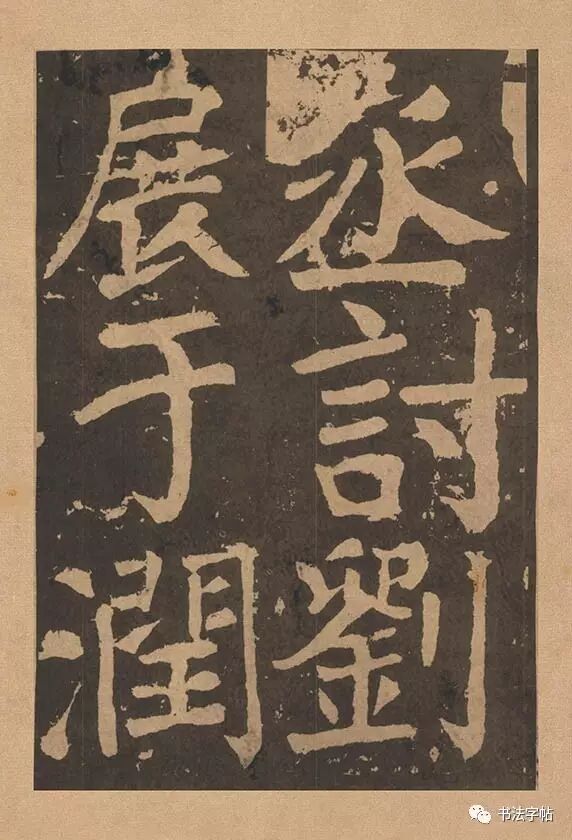 丞討劉
展于潤
书法字帖